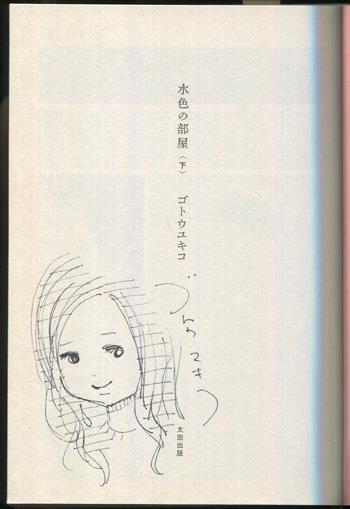 水色の部屋〈下〉 ゴトウユキコ
太田出版